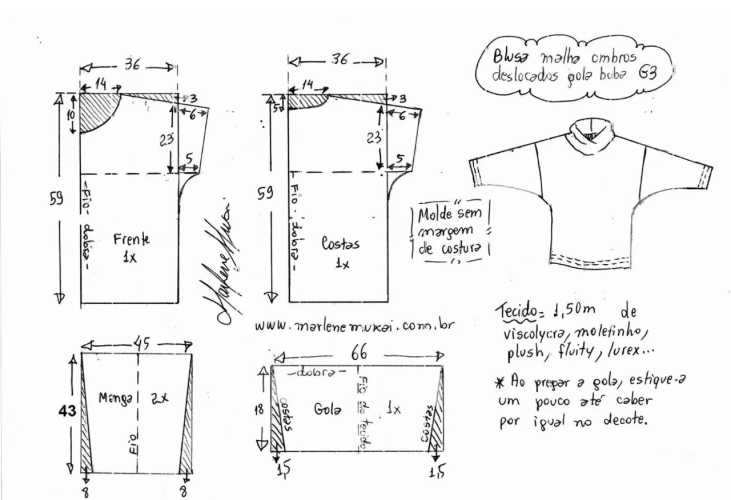 Blusa malha ombros
deslocados gola boba G3
36
14
10
3
6
23
5
59
-Fio-dobra-
Frente
1x
36
14
5
3
6
23
5
59
-Fio dobra-
Costas
1x
Marlene Mukai
Molde sem
margem
de costura
www.marlenemukai.com.br
Tecido= 1,50m de
viscolycra, moletinho,
plush, fluity, lurex...
* Ao pregar a gola, estique-a
um pouco até caber
por igual no decote.
45
43
Manga 2x
Fio
8
8
66
-dobra-
18
costas
Gola 1x
Fio do tecido
costas
1,5
1,5